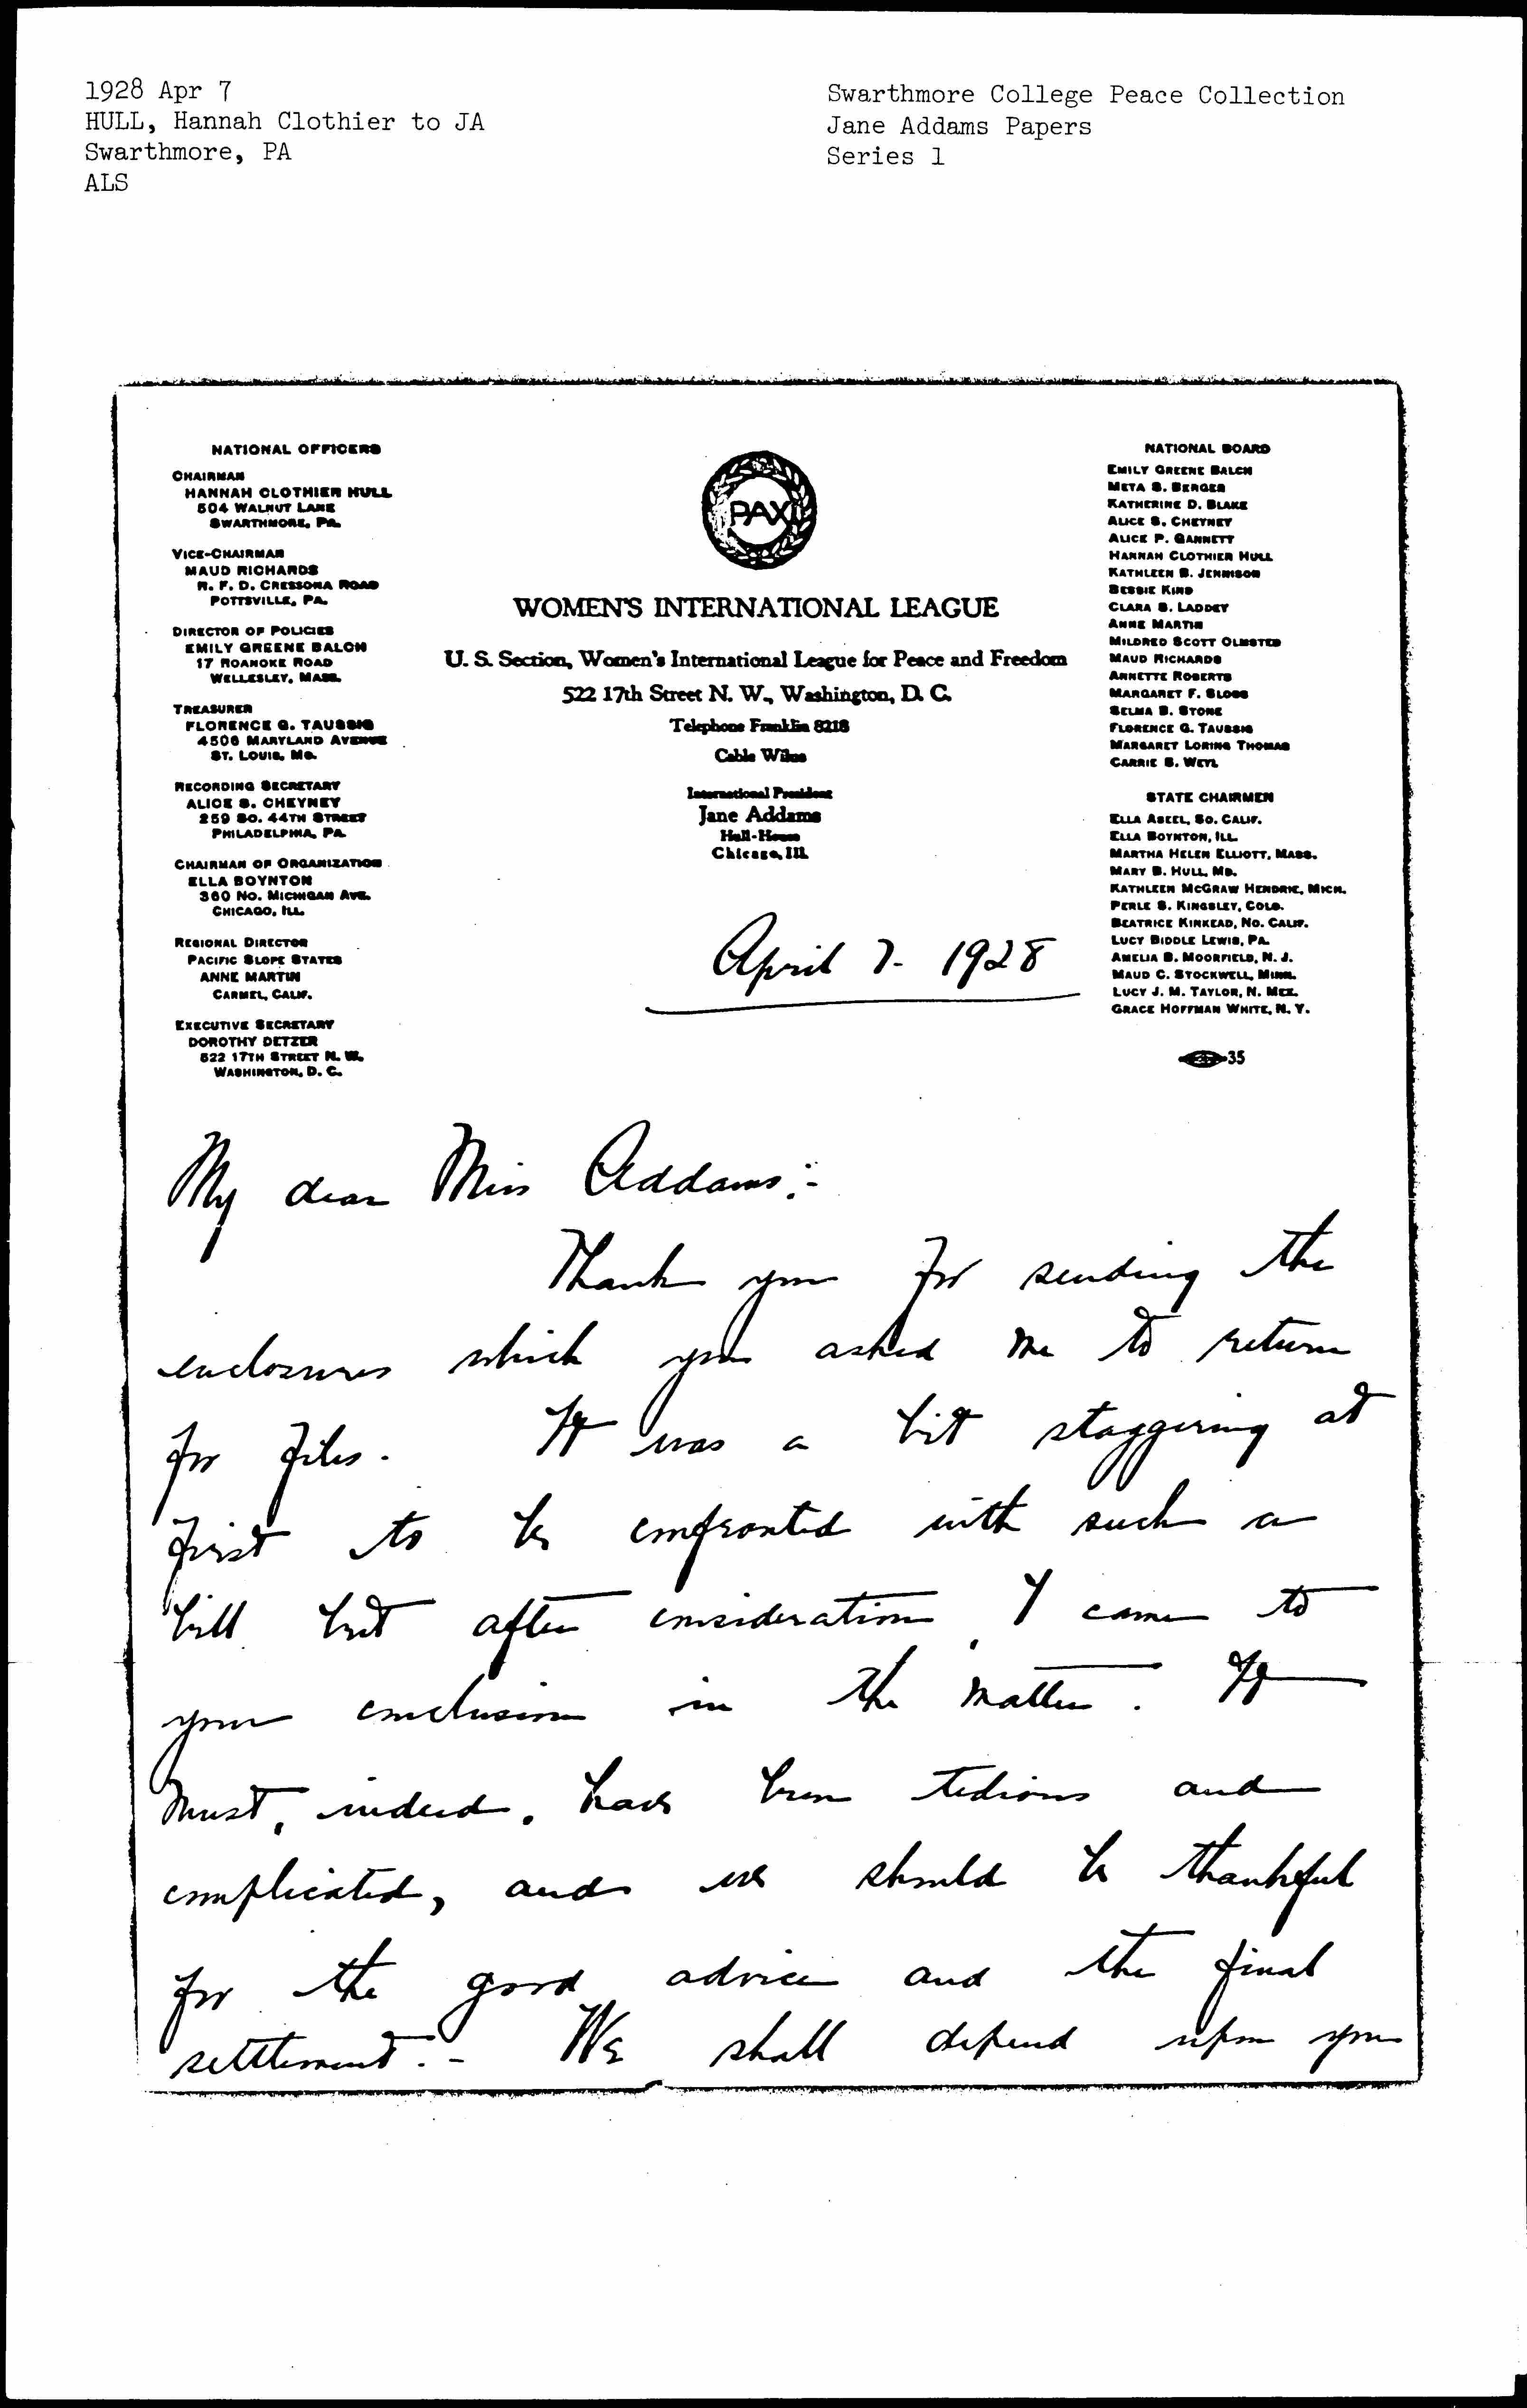 1928 Apr 7
HULL, Hannah Clothier to JA
Swarthmore, PA
ALS
Swarthmore College Peace Collection
Jane Addams Papers
Series 1
NATIONAL OFFICERS
CHAIRMAN
HANNAH CLOTHIER HULL
504 WALNUT LANE
SWARTHMORE, PA.
VICE-CHAIRMAN
MAUD RICHARDS
R. F. D. CRESSONA ROAD
POTTSVILLE, PA.
DIRECTOR OF POLICIES
EMILY GREENE BALCH
17 ROANOKE ROAD
WELLESLEY, MASS.
TREASURER
FLORENCE G. TAUSSIG
4506 MARYLAND AVENUE
ST. LOUIS, MO.
RECORDING SECRETARY
ALICE S. CHEYNEY
259 SO. 44TH STREET
PHILADELPHIA, PA.
CHAIRMAN OF ORGANIZATION
ELLA BOYNTON
360 NO. MICHIGAN AVE.
CHICAGO, ILL.
REGIONAL DIRECTOR
PACIFIC SLOPE STATES
ANNE MARTIN
CARMEL, CALIF.
EXECUTIVE SECRETARY
DOROTHY DETZER
522 17TH STREET N. W.
WASHINGTON, D. C.
PAX
WOMEN'S INTERNATIONAL LEAGUE
U. S. Section, Women's International League for Peace and Freedom
522 17th Street N. W., Washington, D. C.
Telephone Franklin 8218
Cable Wilus
International President
Jane Addams
Hull-House
Chicago, Ill.
NATIONAL BOARD
EMILY GREENE BALCH
META S. BERGER
KATHERINE D. BLAKE
ALICE S. CHEYNEY
ALICE P. GANNETT
HANNAH CLOTHIER HULL
KATHLEEN B. JENNISON
BESSIE KIND
CLARA S. LADDEY
ANNE MARTIN
MILDRED SCOTT OLMSTED
MAUD RICHARDS
ANNETTE ROBERTS
MARGARET F. SLOSS
SELMA B. STONE
FLORENCE G. TAUSSIG
MARGARET LORING THOMAS
CARRIE S. WEYL
STATE CHAIRMEN
ELLA ABEEL, SO. CALIF.
ELLA BOYNTON, ILL.
MARTHA HELEN ELLIOTT, MASS.
MARY B. HULL, MD.
KATHLEEN MCGRAW HENDRIE, MICH.
PERLE S. KINGSLEY, COLO.
BEATRICE KINKEAD, NO. CALIF.
LUCY BIDDLE LEWIS, PA.
AMELIA B. MOORFIELD, N. J.
MAUD C. STOCKWELL, MINN.
LUCY J. M. TAYLOR, N. MEX.
GRACE HOFFMAN WHITE, N. Y.
35
April 7- 1928
My dear Miss Addams:-
Thank you for sending the
enclosures which you asked me to return
for files. It was a bit staggering at
first to be confronted with such a
bill but after consideration, I came to
your conclusion in the matter. It
must, indeed, have been tedious and
complicated, and we should be thankful
for the good advice and the final
settlement. - We shall depend upon you